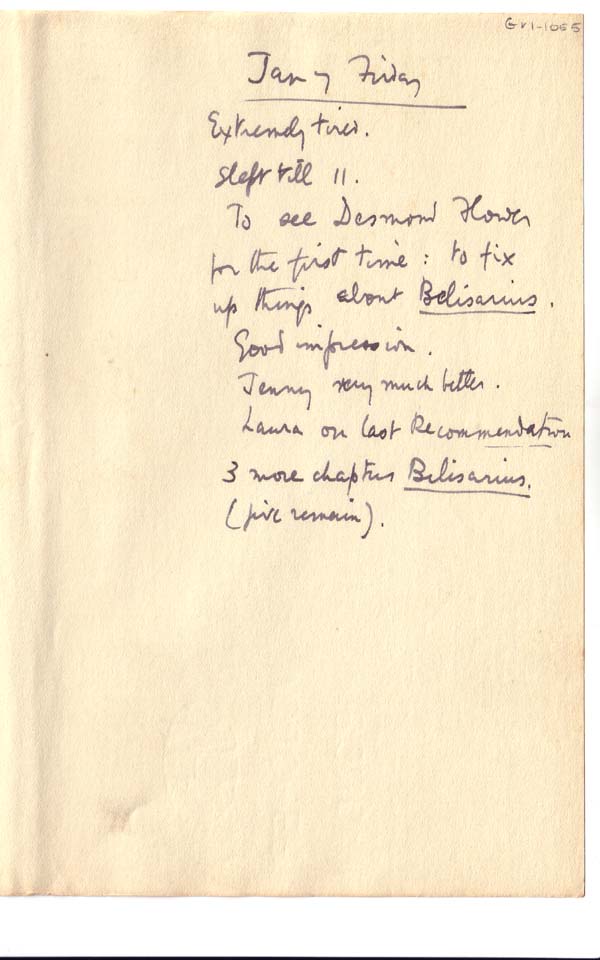 GV1-1055
Jan 7 Friday
Extremely tired.
Slept till 11.
To see Desmond Flower
for the first time : to fix
up things about Belisarius.
Good impression.
Jenny very much better.
Laura on last Recommendation
3 more chapters Belisarius.
(five remain).